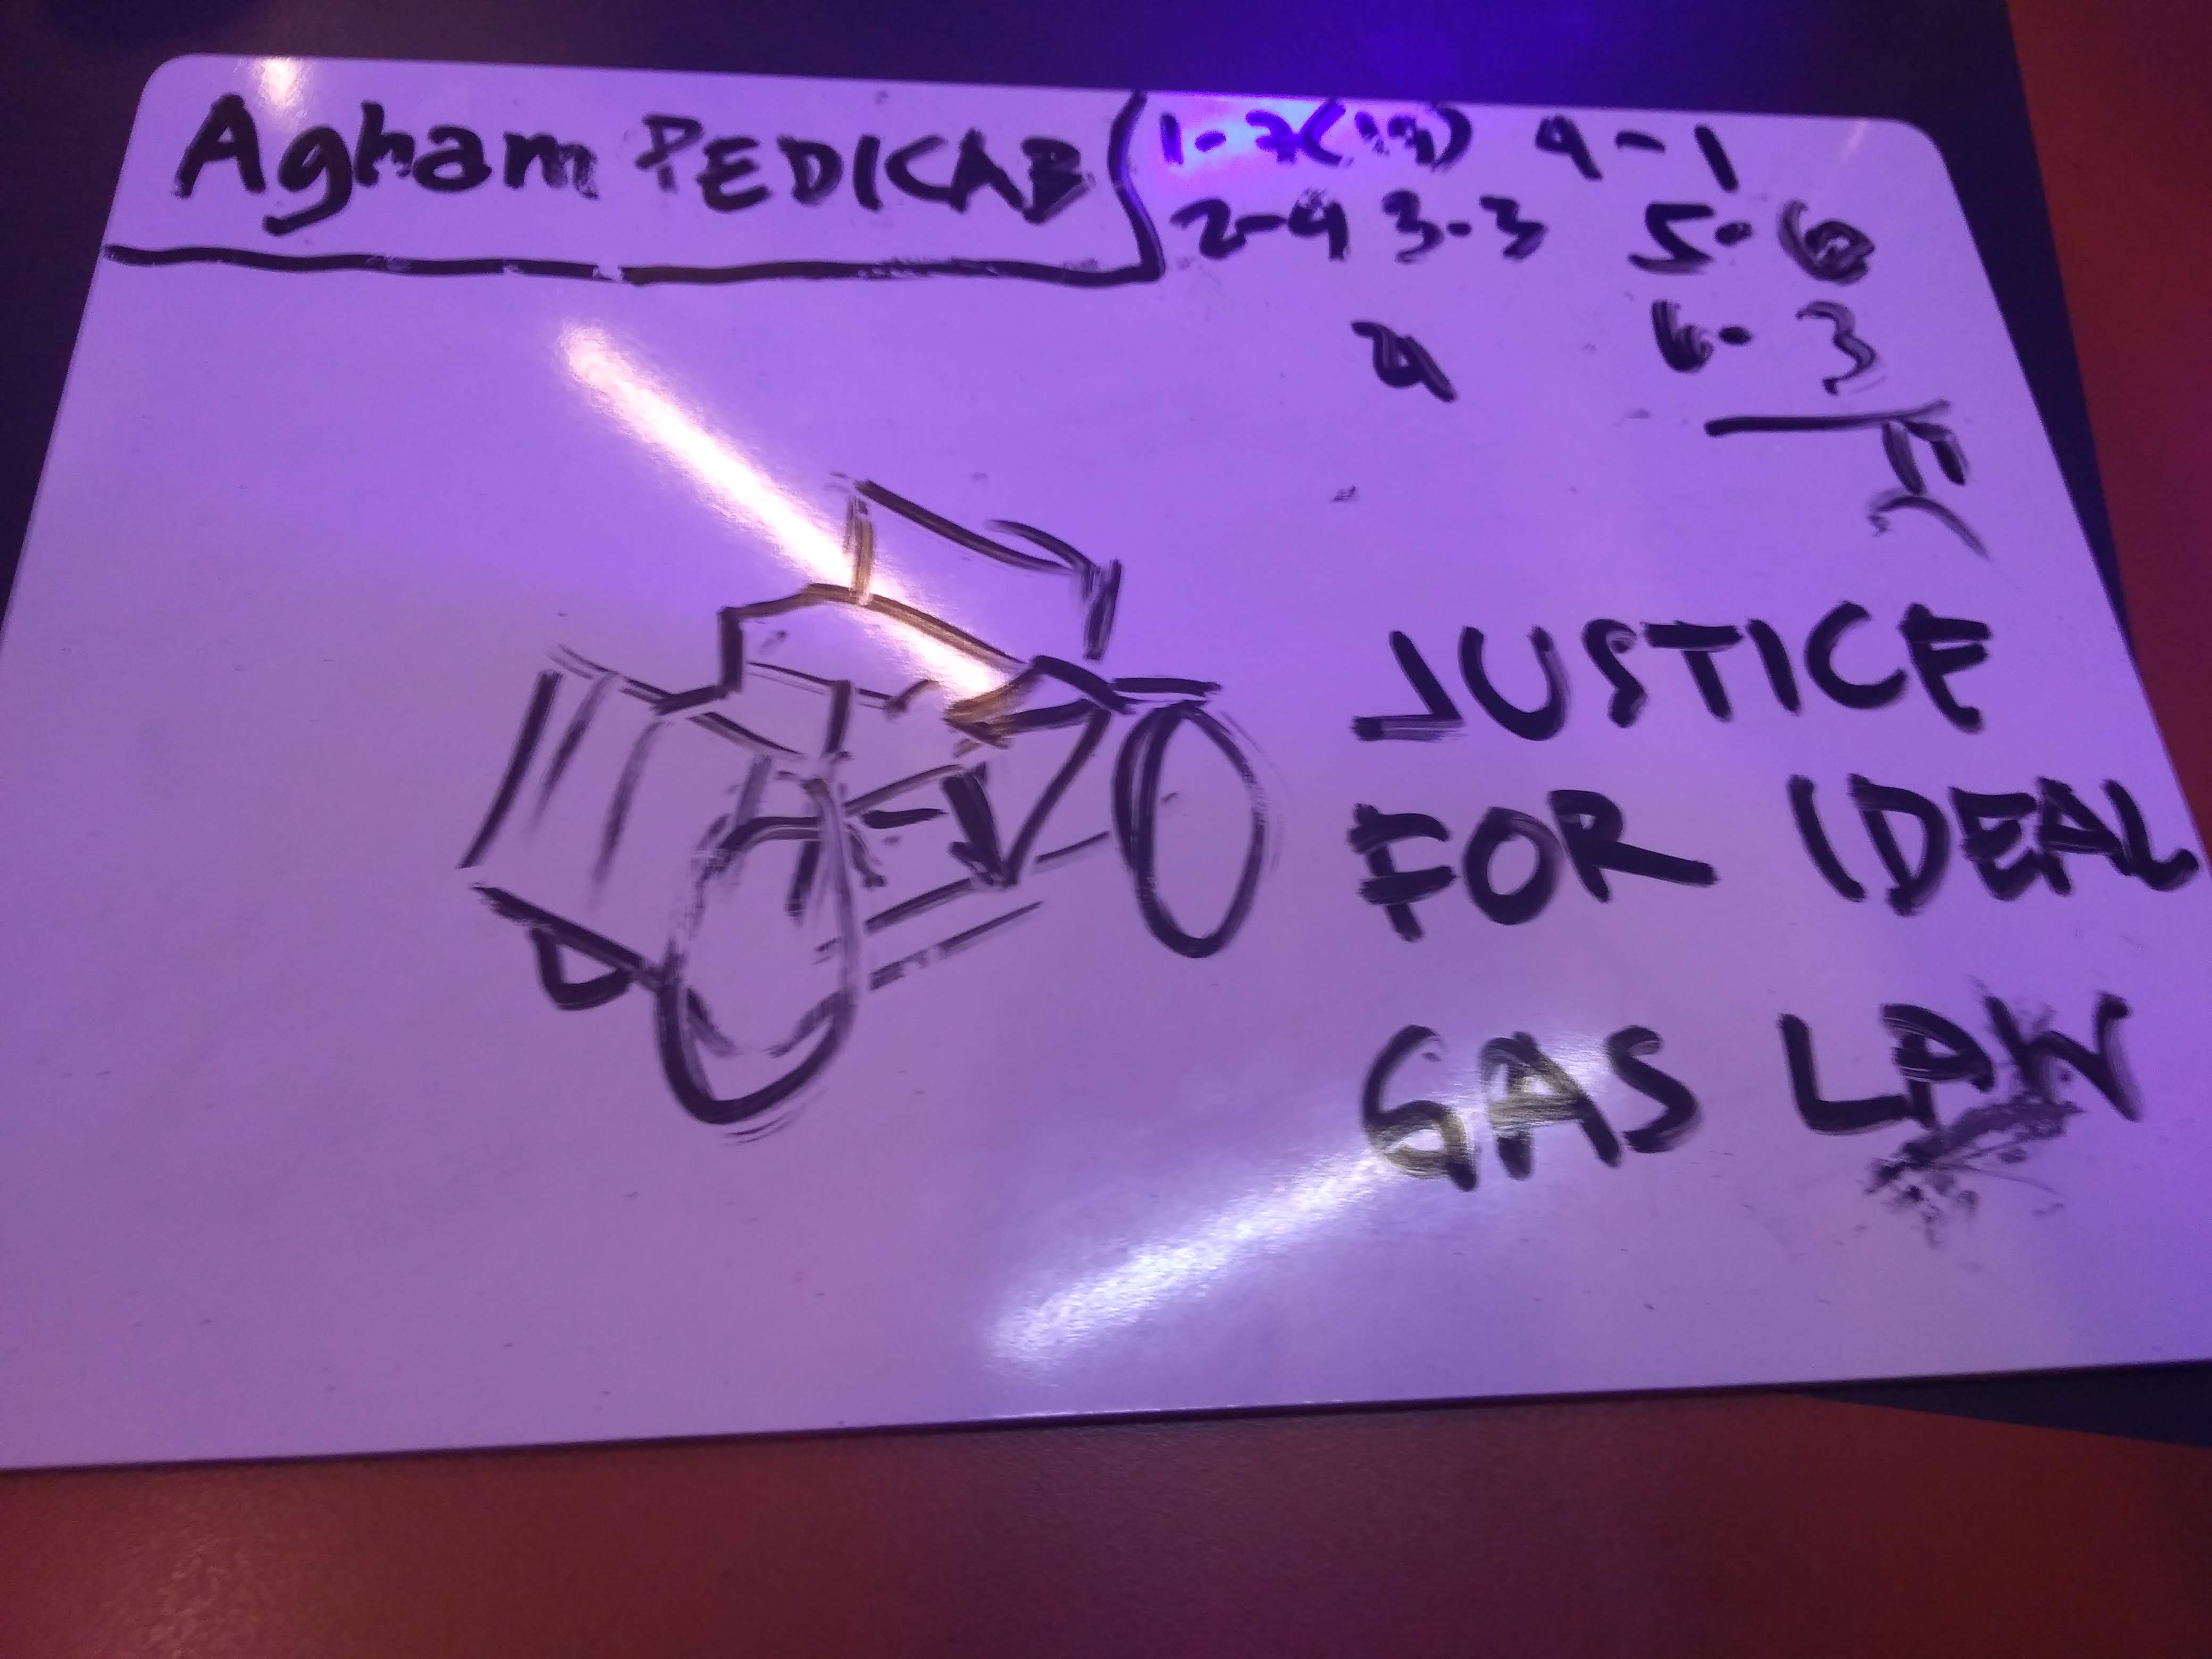 Agham PEDICAB
1-7 4-1
2-4 3-3 5-6
6-3
JUSTICE
FOR IDEAL
GAS LAW